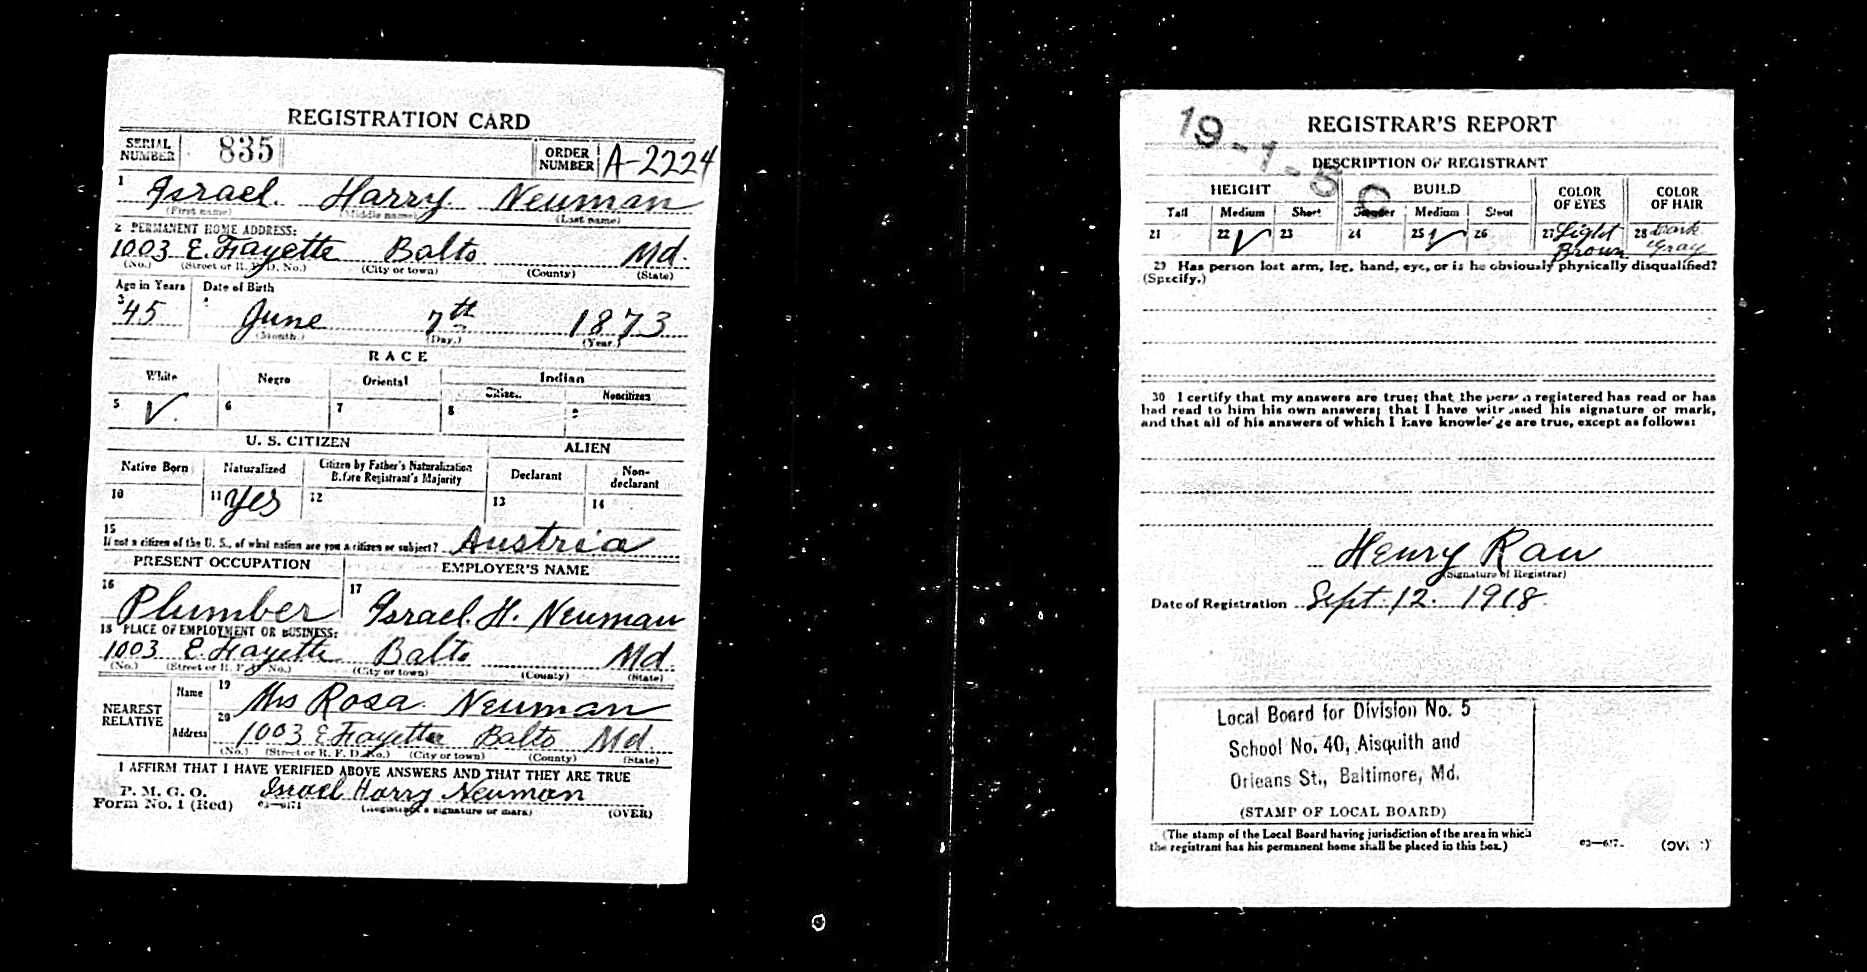 REGISTRATION CARD
SERIAL NUMBER 835 ORDER NUMBER A-2224
1 Israel. Harry. Neuman
(First name) (Middle name) (Last name)
2 PERMANENT HOME ADDRESS:
1003 E. Fayette Balto Md.
(No.) (Street or R. F. D. No.) (City or town) (County) (State)
Age in Years Date of Birth
3 45 4 June 7th 1873
(Month.) (Day.) (Year.)
RACE
White Negro Oriental Indian
Citizen. Noncitizen
5 ✓ 6 7 8 9
U. S. CITIZEN ALIEN
Native Born Naturalized Citizen by Father's Naturalization Before Registrant's Majority Declarant Non-declarant
10 11 Yes 12 13 14
15
If not a citizen of the U. S., of what nation are you a citizen or subject? Austria
PRESENT OCCUPATION EMPLOYER'S NAME
16 Plumber 17 Israel. H. Neuman
18 PLACE OF EMPLOYMENT OR BUSINESS:
1003 E. Fayette Balto Md.
(No.) (Street or R. F. D. No.) (City or town) (County) (State)
NEAREST RELATIVE Name 19 Mrs Rosa. Neuman
Address 20 1003 E Fayette Balto Md.
(No.) (Street or R. F. D. No.) (City or town) (County) (State)
I AFFIRM THAT I HAVE VERIFIED ABOVE ANSWERS AND THAT THEY ARE TRUE
P. M. G. O. Israel Harry Neuman
Form No. 1 (Red) (Registrant's signature or mark) (OVER)
19-1-5 C
REGISTRAR'S REPORT
DESCRIPTION OF REGISTRANT
HEIGHT BUILD COLOR OF EYES COLOR OF HAIR
Tall Medium Short Slender Medium Stout
21 22 ✓ 23 24 25 ✓ 26 27 Light Brown 28 Dark Gray
29 Has person lost arm, leg, hand, eye, or is he obviously physically disqualified?
(Specify.)
30 I certify that my answers are true; that the person registered has read or has
had read to him his own answers; that I have witnessed his signature or mark,
and that all of his answers of which I have knowledge are true, except as follows:
Henry Rau
(Signature of Registrar)
Date of Registration Sept. 12. 1918.
Local Board for Division No. 5
School No. 40, Aisquith and
Orleans St., Baltimore, Md.
(STAMP OF LOCAL BOARD)
(The stamp of the Local Board having jurisdiction of the area in which
the registrant has his permanent home shall be placed in this box.)
(OVER)